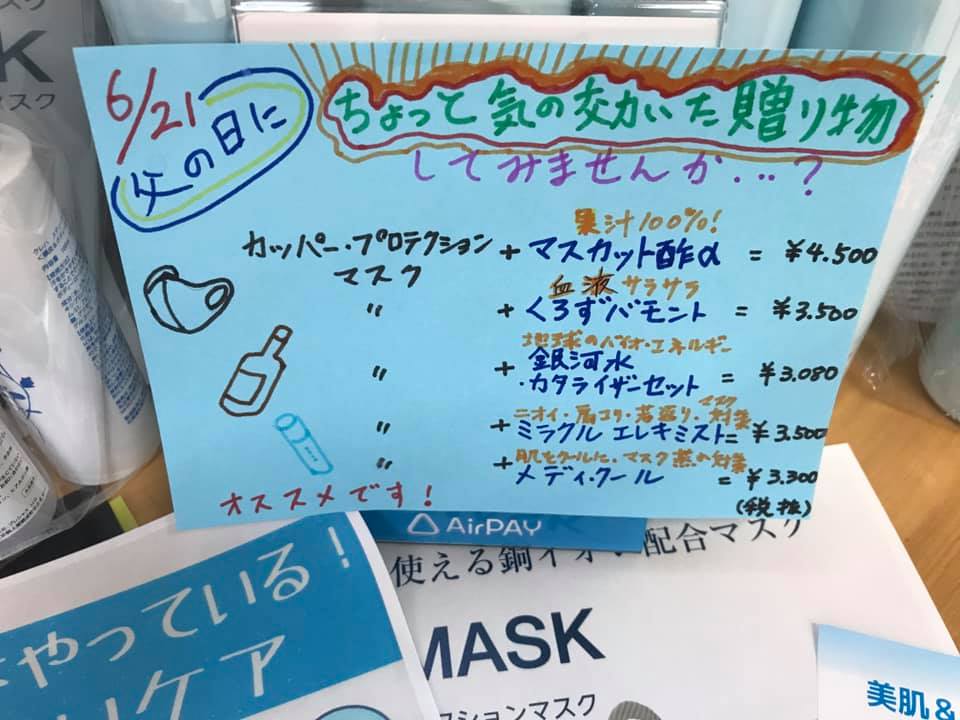 6/21
父の日に
ちょって気の効いた贈り物
してみませんか...?
果汁100%!
カッパー・プロテクション + マスカット酢α = ¥4.500
マスク
血液サラサラ
〃 + くろずバモント = ¥3.500
地球のバイオ・エネルギー
〃 + 銀河水
・カタライザーセット = ¥3.080
マスク
ニオイ・肩コリ・若返り・対策
〃 + ミラクル エレキミスト = ¥3.500
肌をクールに、マスク蒸の対策
〃 + メディ・クール = ¥3.300
(税抜)
オススメです!
AirPAY
使える銅イオン配合マスク
MASK
クションマスク
やっている!
ケア
美肌&
K
マスク